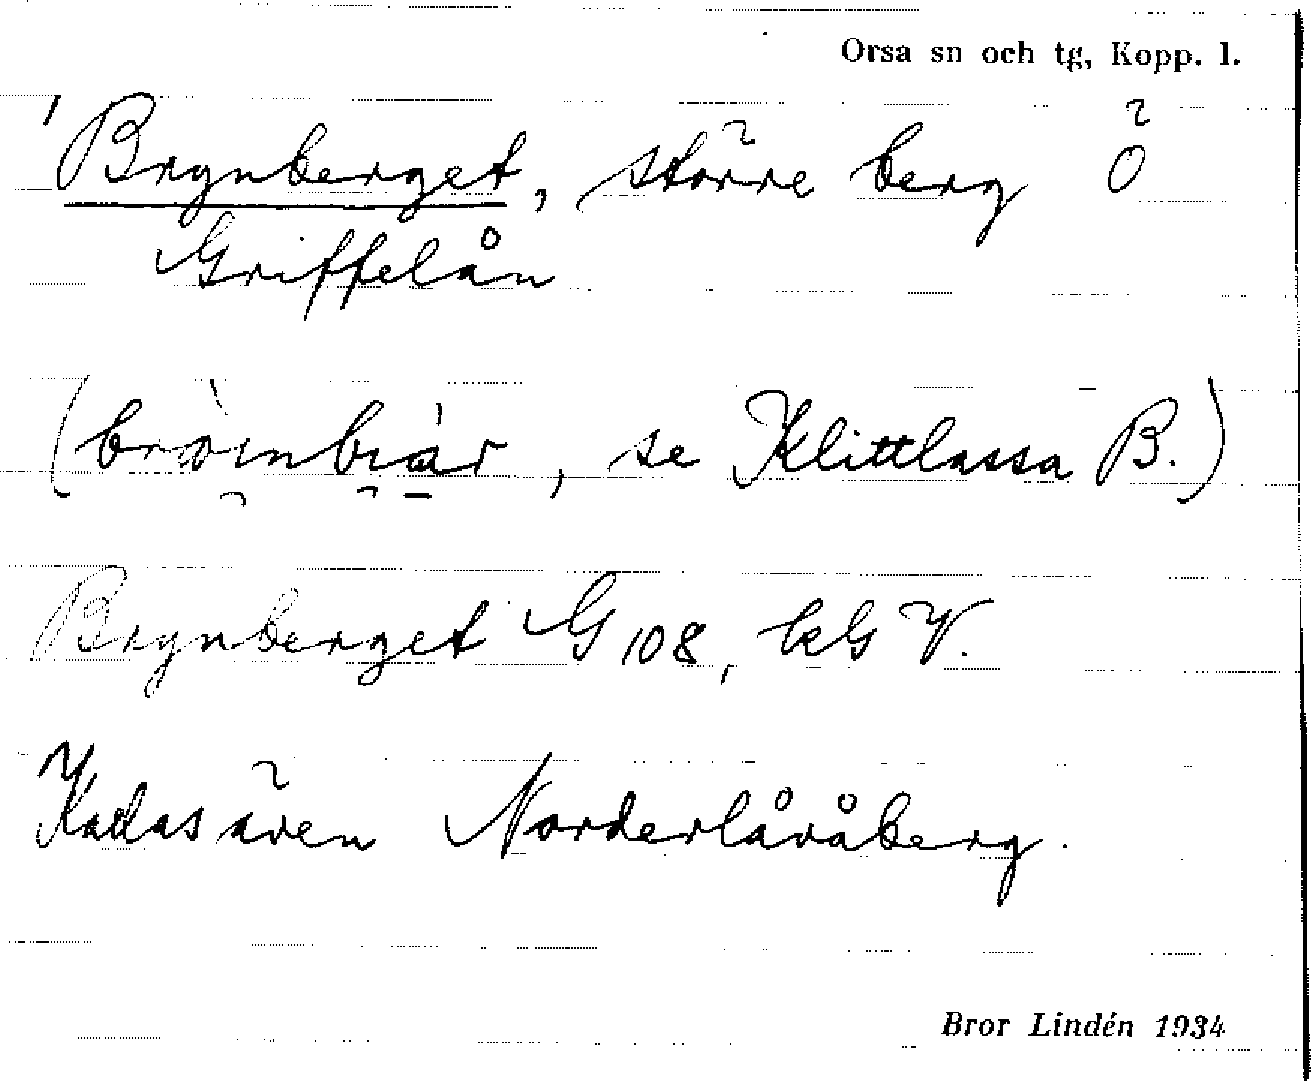 Orsa sn och tg, Kopp. l.
Brynberget, större berg Ö
Griffelån
( , se Klittlassa B.)
Brynberget G 108, kG V.
Kadas även Norderlåvåberg.
Bror Lindén 1934